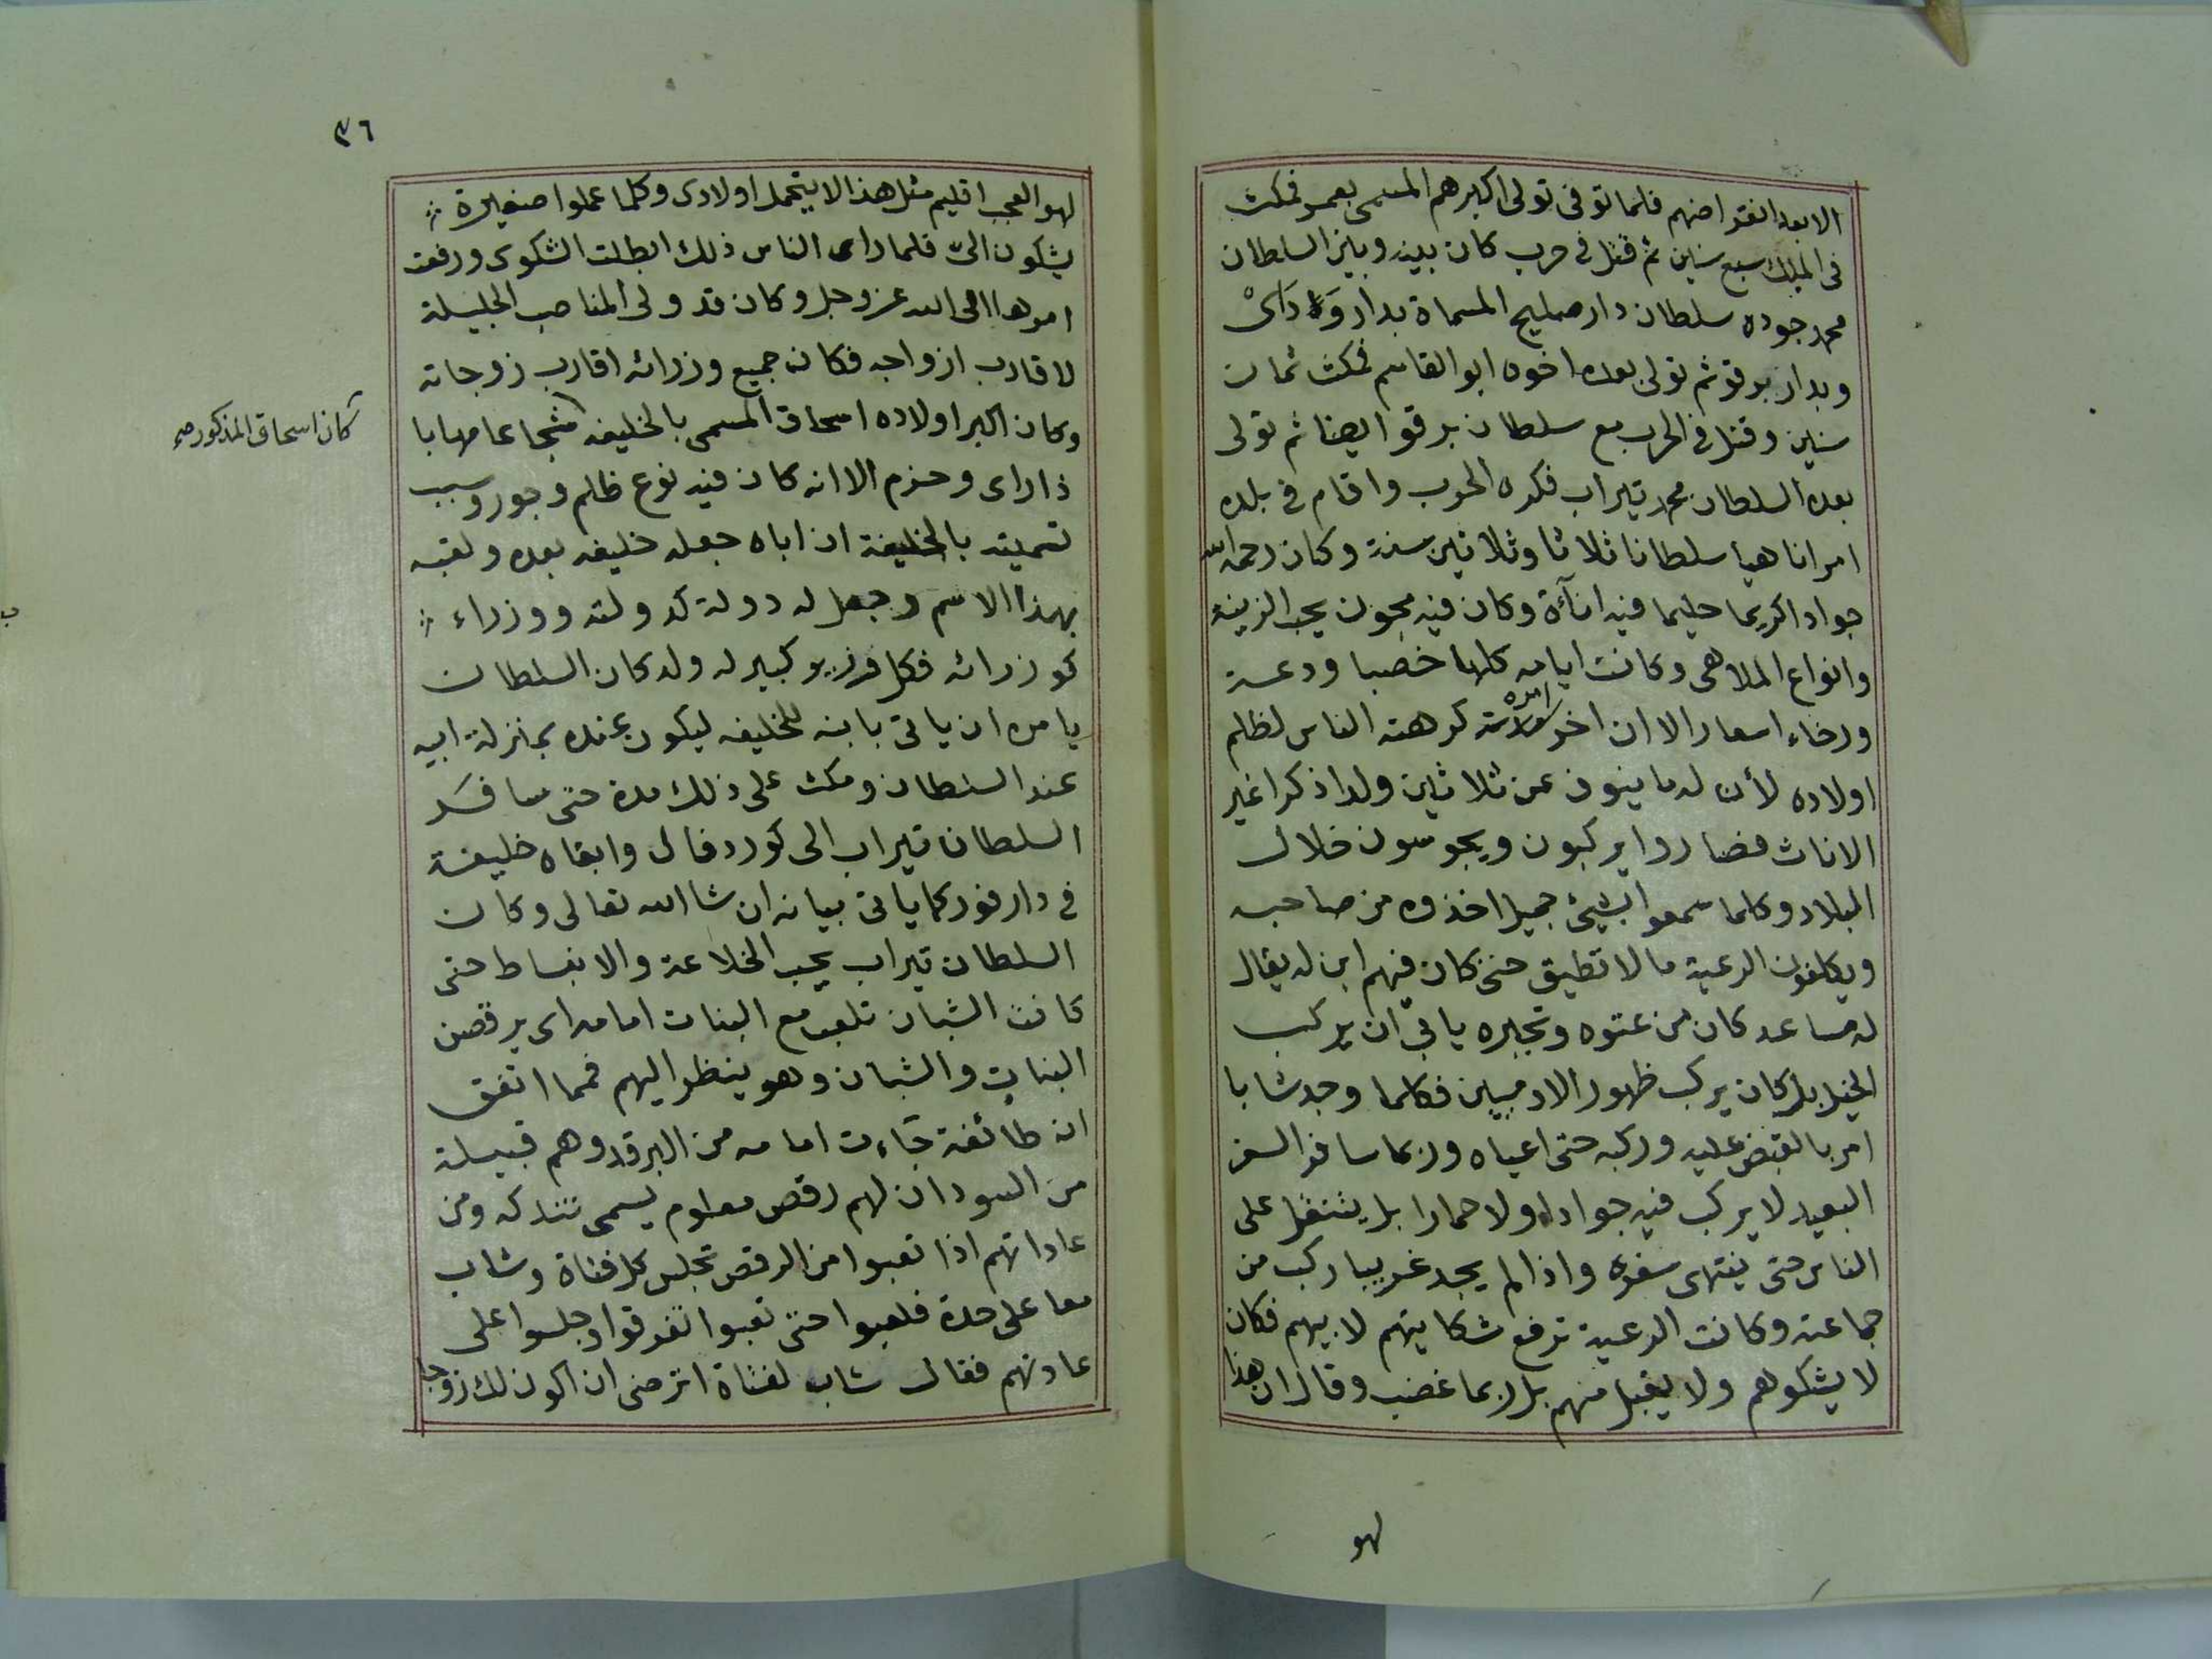 الابعد انقراضهم فلما توفى تولى اكبرهم المسمى بعمر فمكث
فى الملك سبع سنين ثم قتل فى حرب كان بينه وبين السلطان
محمد جوده سلطان دار صليح المسماة بدار وَدَاىْ
وبدار برقو ثم تولى بعده اخوه ابو القاسم فمكث ثمان
سنين وقتل فى الحرب مع سلطان برقو ايضا ثم تولى
بعده السلطان محمد تيراب فكره الحرب واقام فى بلده
امرا ناهيا سلطانا ثلاثا وثلاثين سنة وكان رحمه الله
جوادا كريما حليما فيه انآءة وكان فيه مجون يحب الزينة
وانواع الملاهى وكانت ايامه كلها خصبا ودعة
ورخاء اسعار الا ان اخر امره كرهته الناس لظلم
اولاده لأن له ما ينوف عن ثلاثين ولدا ذكرا غير
الاناث فصاروا يركبون ويجوسون خلال
البلاد وكلما سمعوا بشيئ جميل اخذوه من صاحبه
ويكلفون الرعية ما لا تطيق حتى كان فيهم ابن له يقال
له مساعد كان من عتوه وتجبره يابى ان يركب
الخيل بل كان يركب ظهور الادميين فكلما وجد شابا
امر بالقبض عليه وركبه حتى اعياه وربما سافر السفر
البعيد لا يركب فيه جوادا ولا حمارا بل يتنقل على
الناس حتى ينتهى سفره واذا لم يجد غريبا ركب من
جماعته وكانت الرعية ترفع شكايتهم لابيهم فكان
لا يشكوهم ولا يقبل منهم بل ربما غضب وقال ان هذا
لهو
٣٦
لهو العجب اقليم مثل هذا لا يتحمل اولادى وكلما عملوا صغيرة
يشكون الىّ فلما راى الناس ذلك ابطلت الشكوى ورفعت
امرها الى الله عز وجل وكان قد ولى المناصب الجليلة
لاقارب ازواجه فكان جميع وزرائه اقارب زوجاته
وكان اكبر اولاده اسحاق المسمى بالخليفه شجاعا مهابا
كان اسحاق المذكور صح
ذا راى وحزم الا انه كان فيه نوع ظلم وجور وسبب
تسميته بالخليفة ان اباه جعله خليفه بعده ولقبه
بهذا الاسم وجعل له دولة كدولته ووزراء
كوزرائه فكل وزير كبير له ولد كان السلطان
يامره ان ياتى بابنه للخليفه ليكون عنده بمنزلة ابيه
عند السلطان ومكث على ذلك مدة حتى سافر
السلطان تيراب الى كوردفال وابقاه خليفة
فى دارفور كما ياتى بيانه ان شا الله تعالى وكان
السلطان تيراب يحب الخلاعة والانبساط حتى
كانت الشبان تلعب مع البنات امامه اى يرقصن
البنات والشبان وهو ينظر اليهم فمما اتفق
ان طائفة جَاءت امامه من البرقد وهم قبيلة
من السودان لهم رقص معلوم يسمى تندكه ومن
عاداتهم اذا تعبوا من الرقص تجلس كل فتاة وشاب
معا على حدة فلعبوا حتى تعبوا تفرقوا وجلسوا على
عادتهم فقال شاب لفتاة اترضى ان اكون لك زوجا